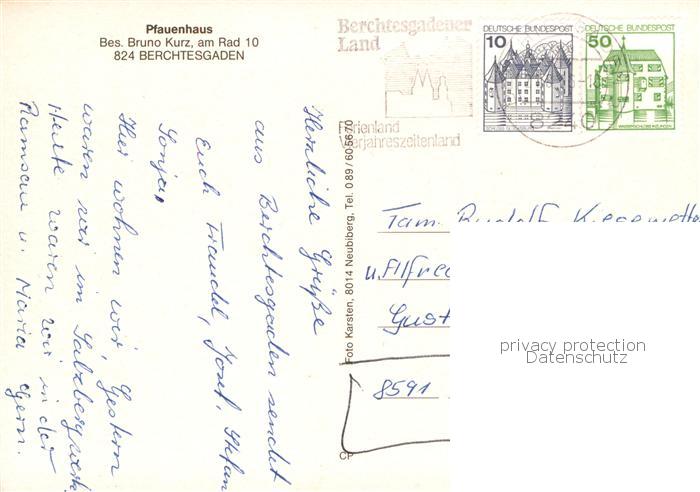 Pfauenhaus
Bes. Bruno Kurz, am Rad 10
824 BERCHTESGADEN
Berchtesgadener
Land
Ferienland
Vierjahreszeitenland
8240
DEUTSCHE BUNDESPOST
10
DEUTSCHE BUNDESPOST
50
Herzliche Grüße
aus Berchtesgaden sendet
Euch Traudel, Josef, Stefan
Sonja,
Hier wohnen wir, Gestern
waren wir im Salzbergwerk
Heute waren wir in der
Ramsau u. Maria Gern.
Foto Karsten, 8014 Neubiberg, Tel. 0 89 / 60 56 70
CP
Fam. Rudolf
u. Alfred
Gust
8591
privacy protection
Datenschutz